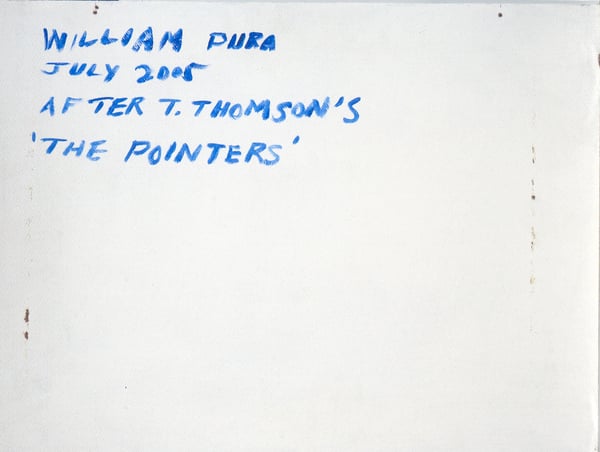 WILLIAM PURA
JULY 2005
AFTER T. THOMSON'S
'THE POINTERS'